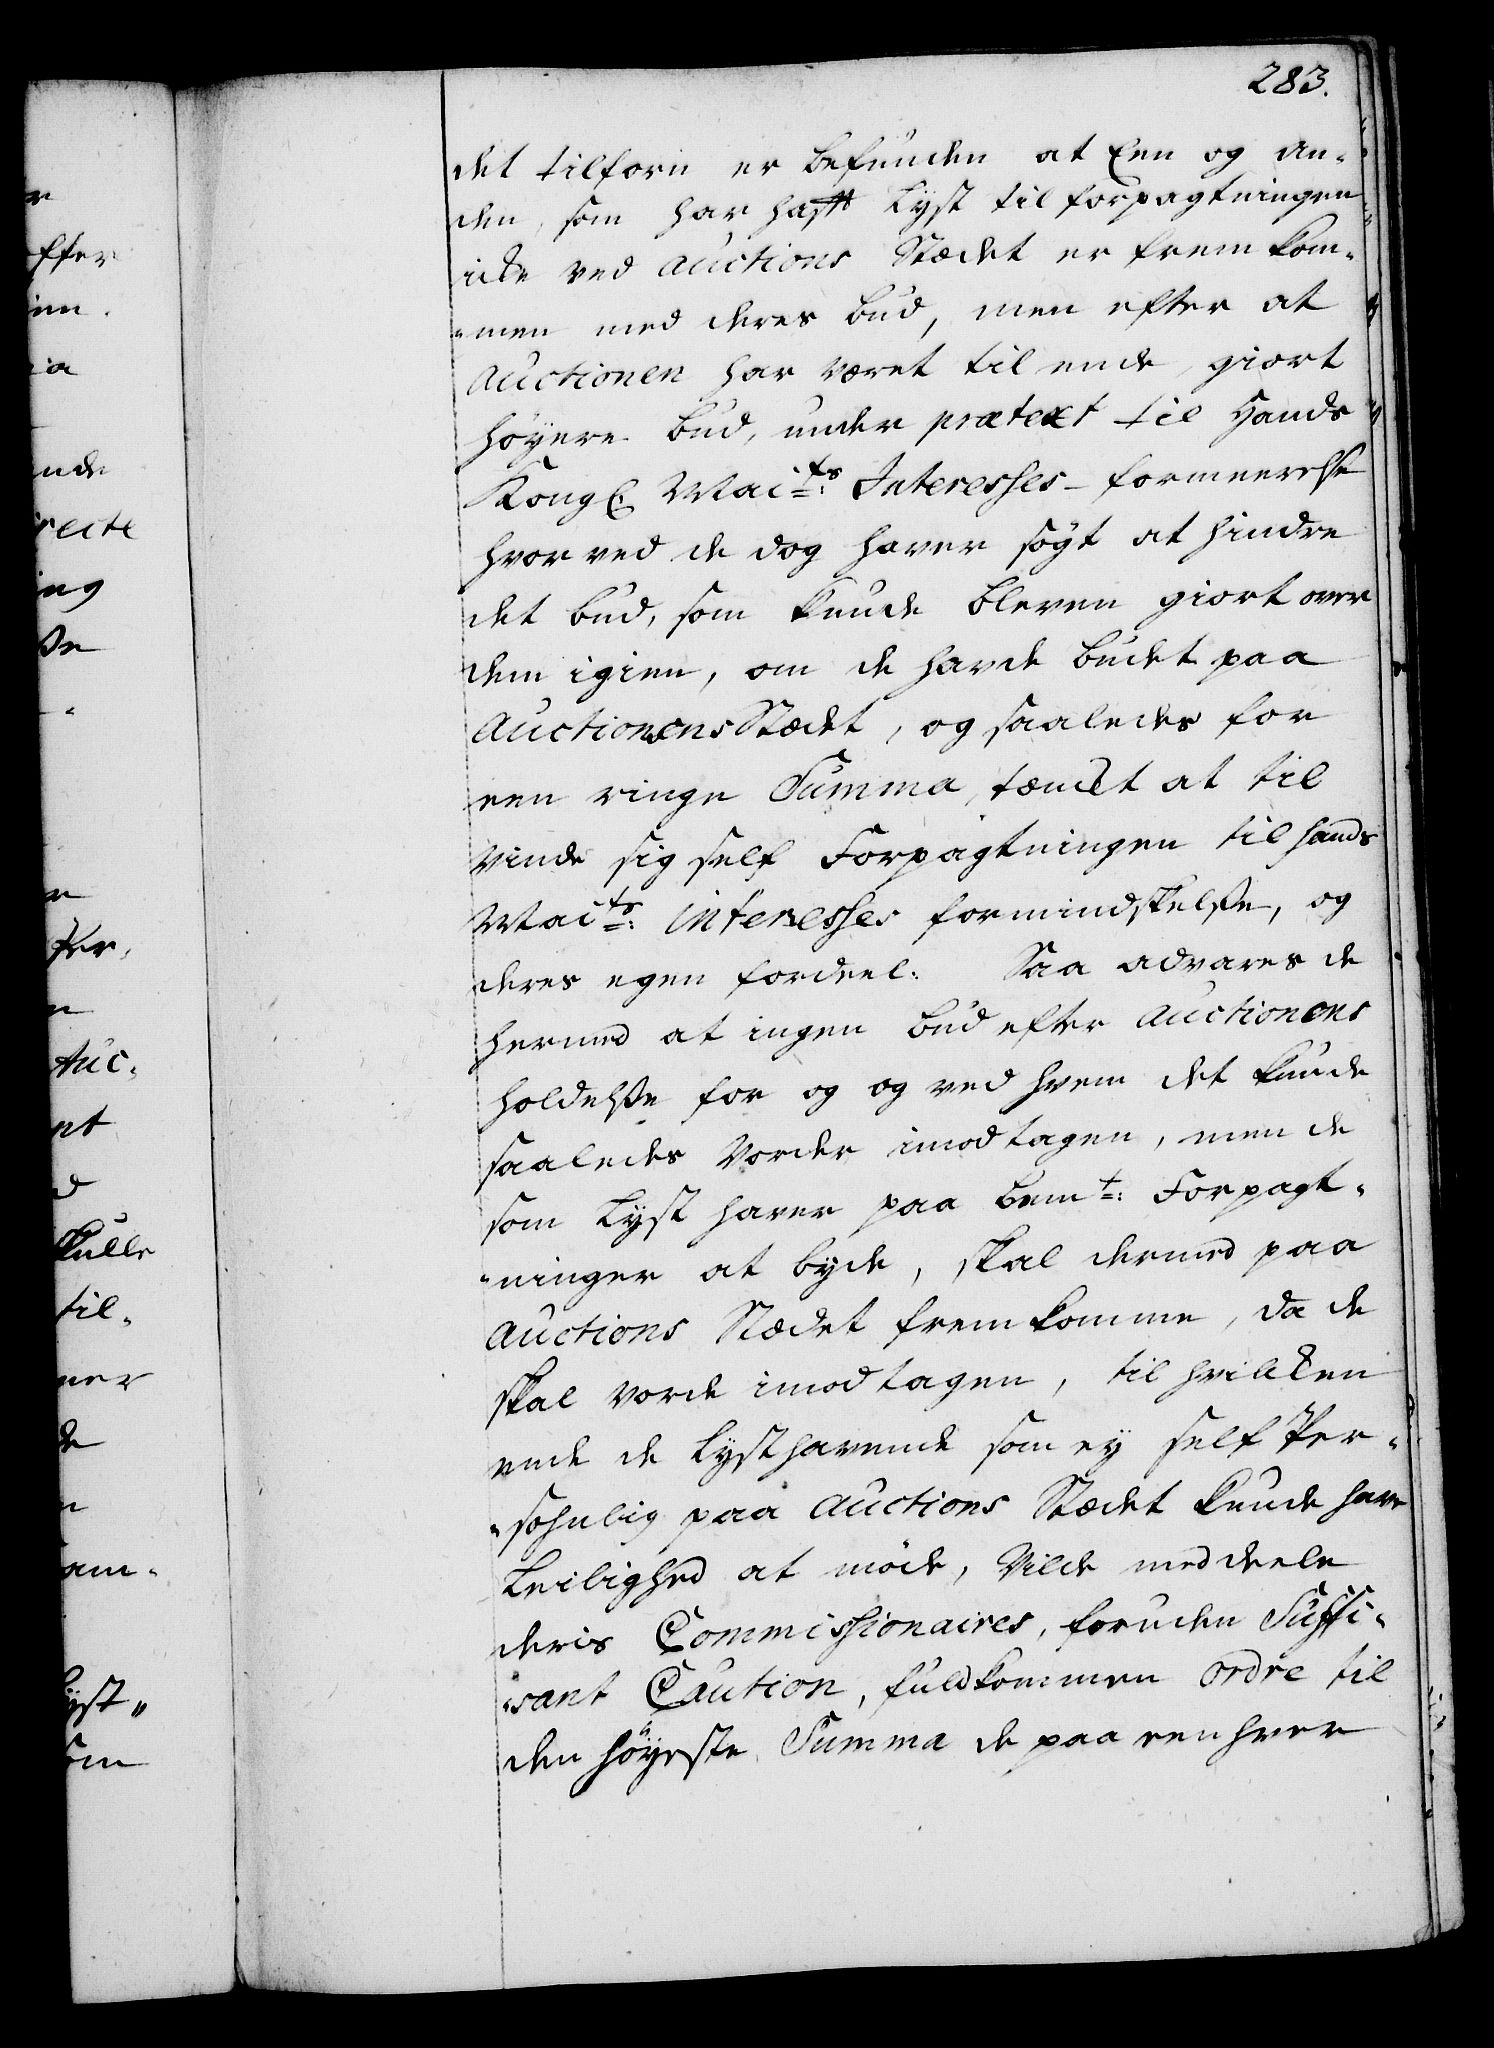 283.
det tilforn er befunden at Een og an-
den, som har hafft Lyst til forpagtningen
icke ved Auctions Stædet er frem kom-
-men med deres bud, men efter at
Auctionen har været til ende, giort
höyere bud, under prætext til Hands
Kongl: Maits: Interesses-formeerelse
hvor ved de dog haver søgt at hindre
det bud, som kunde bleven giort over
dem igien, om de havde budet paa
Auctionens Stædet, og saaledes for
een ringe Summa, tænckt at til
vinde sig self Forpagtningen til hands
Maits: Interesses formindskelse, og
deres egen fordeel. Saa advares de
hermed at ingen bud efter Auctionens
holdelse for og og ved hvem det kunde
saaledes vorder imodtagen, men de
som Lyst haver paa bemt: Forpagt-
-ninger at byde, skal dermed paa
Auctions Stædet fremkomme, da de
skal vorde imodtagen, til hvilken
ende de Lysthavende som ey self Per-
-sohnlig paa Auctions Stædet kunde have
Leilighed at møde, Vilde meddeele
deris Commissionaires, foruden Suffi-
-sant Caution, fuldkommen ordre til
den höyeste Summa de paa een hver
r
effter
ien.
ia
ende
recte
ing
sse
r
Per-
n
Auc-
nt
d
skulle
til-
ner
de
n
am-
Lyst-
som